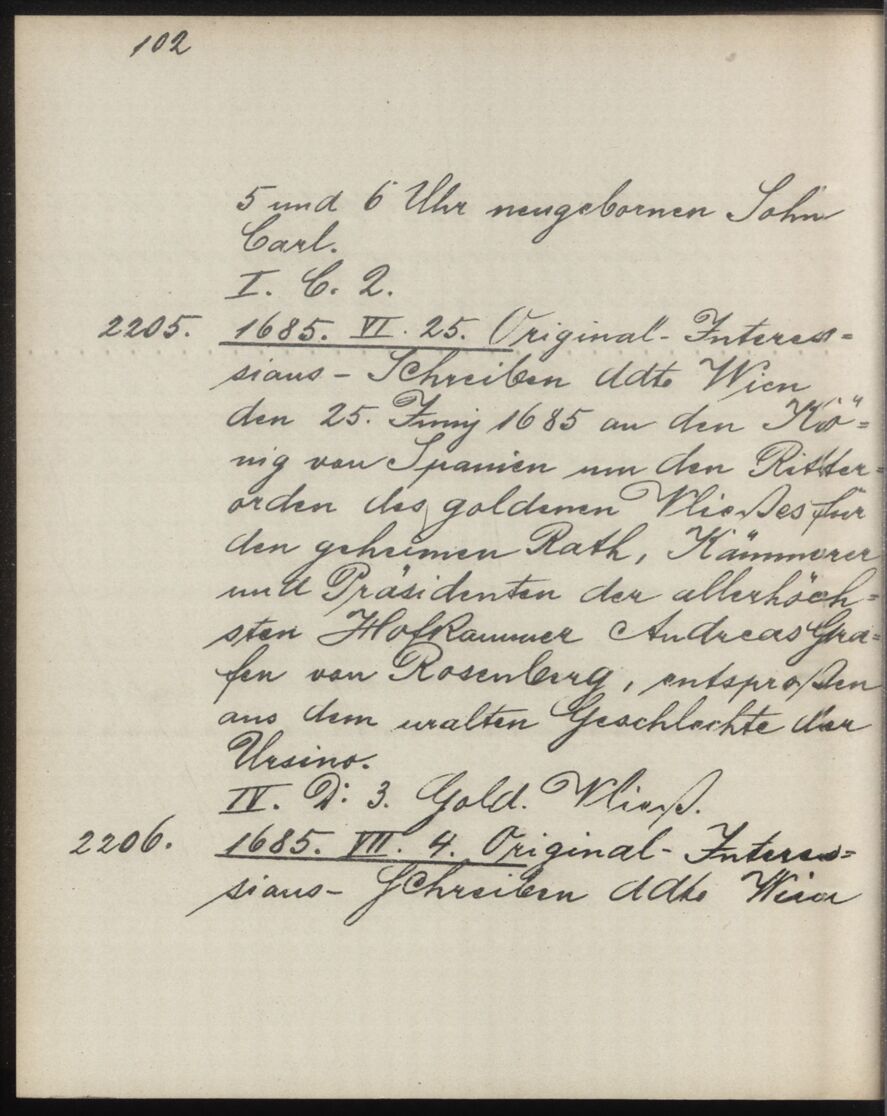 102
5 und 6 Uhr neugebornen Sohn
Carl.
I. C. 2.
2205. 1685. VI. 25. Original-Interes=
sions-Schreiben ddto Wien
den 25. Juny 1685 an den Kö=
nig von Spanien um den Ritter=
orden des goldenen Vließes für
den geheimen Rath, Kämmerer
und Präsidenten der allerhöch=
sten Hofkammer Andreas Gra=
fen von Rosenberg, entsproßen
aus dem uralten Geschlechte der
Ursino.
IV. D: 3. Gold. Vließ.
2206. 1685. VIII. 4. Original-Interes=
sions-Schreiben ddto Wien